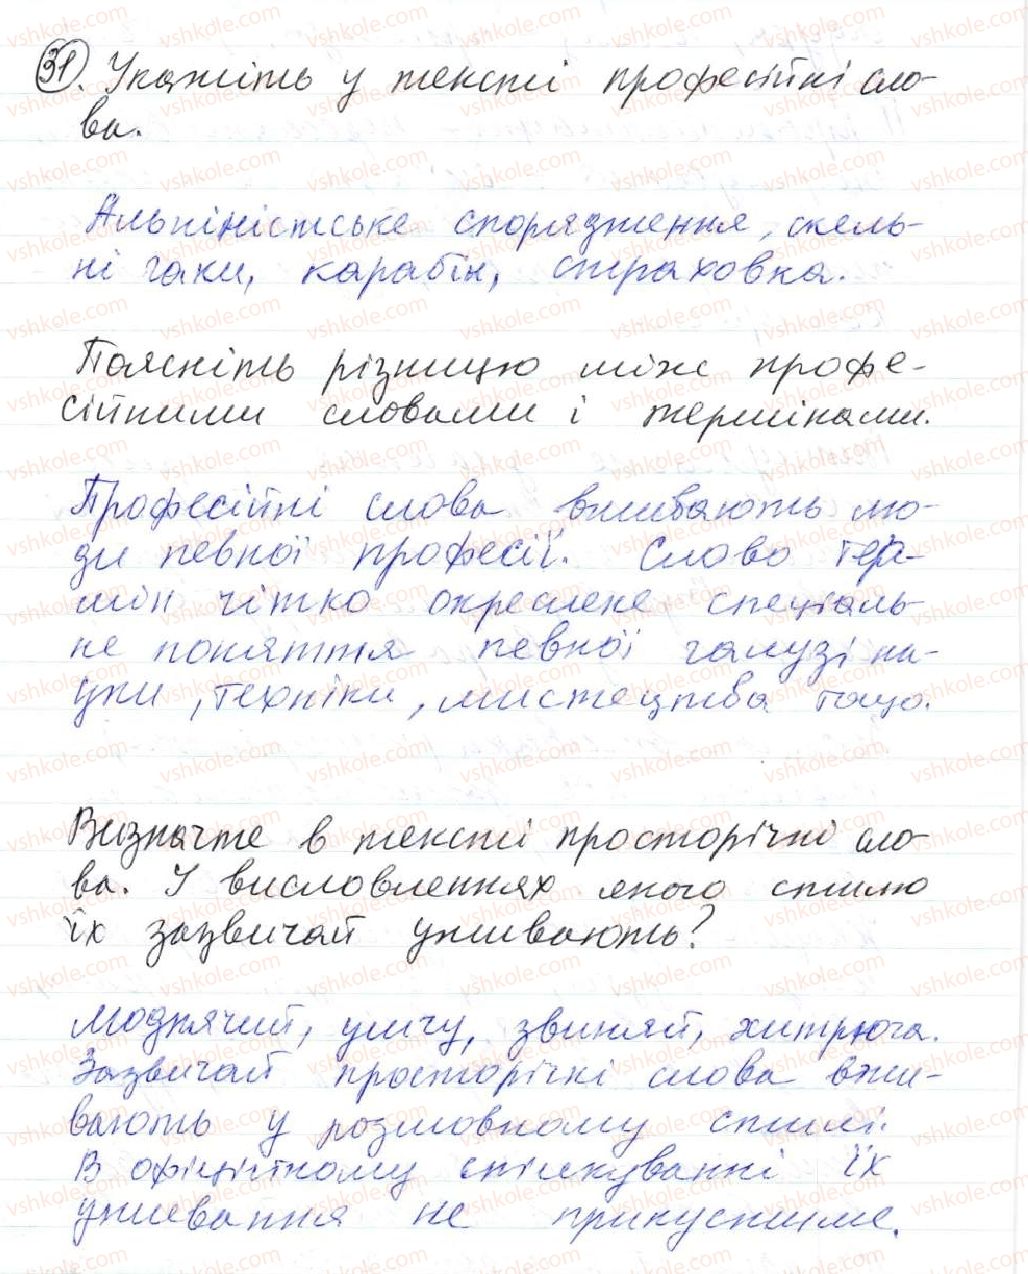 31. Укажіть у тексті професійні сло-
ва.
Альпіністське спорядження, скель-
ні гаки, карабін, страховка.
Поясніть різницю між профе-
сійними словами і термінами.
Професійні слова вживають лю-
ди певної професії. Слово тер-
мін чітко окреслене спеціаль-
не поняття певної галузі на-
уки, техніки, мистецтва тощо.
Визначте в тексті просторічні сло-
ва. У висловленнях якого стилю
їх зазвичай уживають?
Моднячий, умічу, звиняй, хитрюга.
Зазвичай просторічні слова вжи-
вають у розмовному стилі.
В офіційному спілкуванні їх
уживання не припустиме.